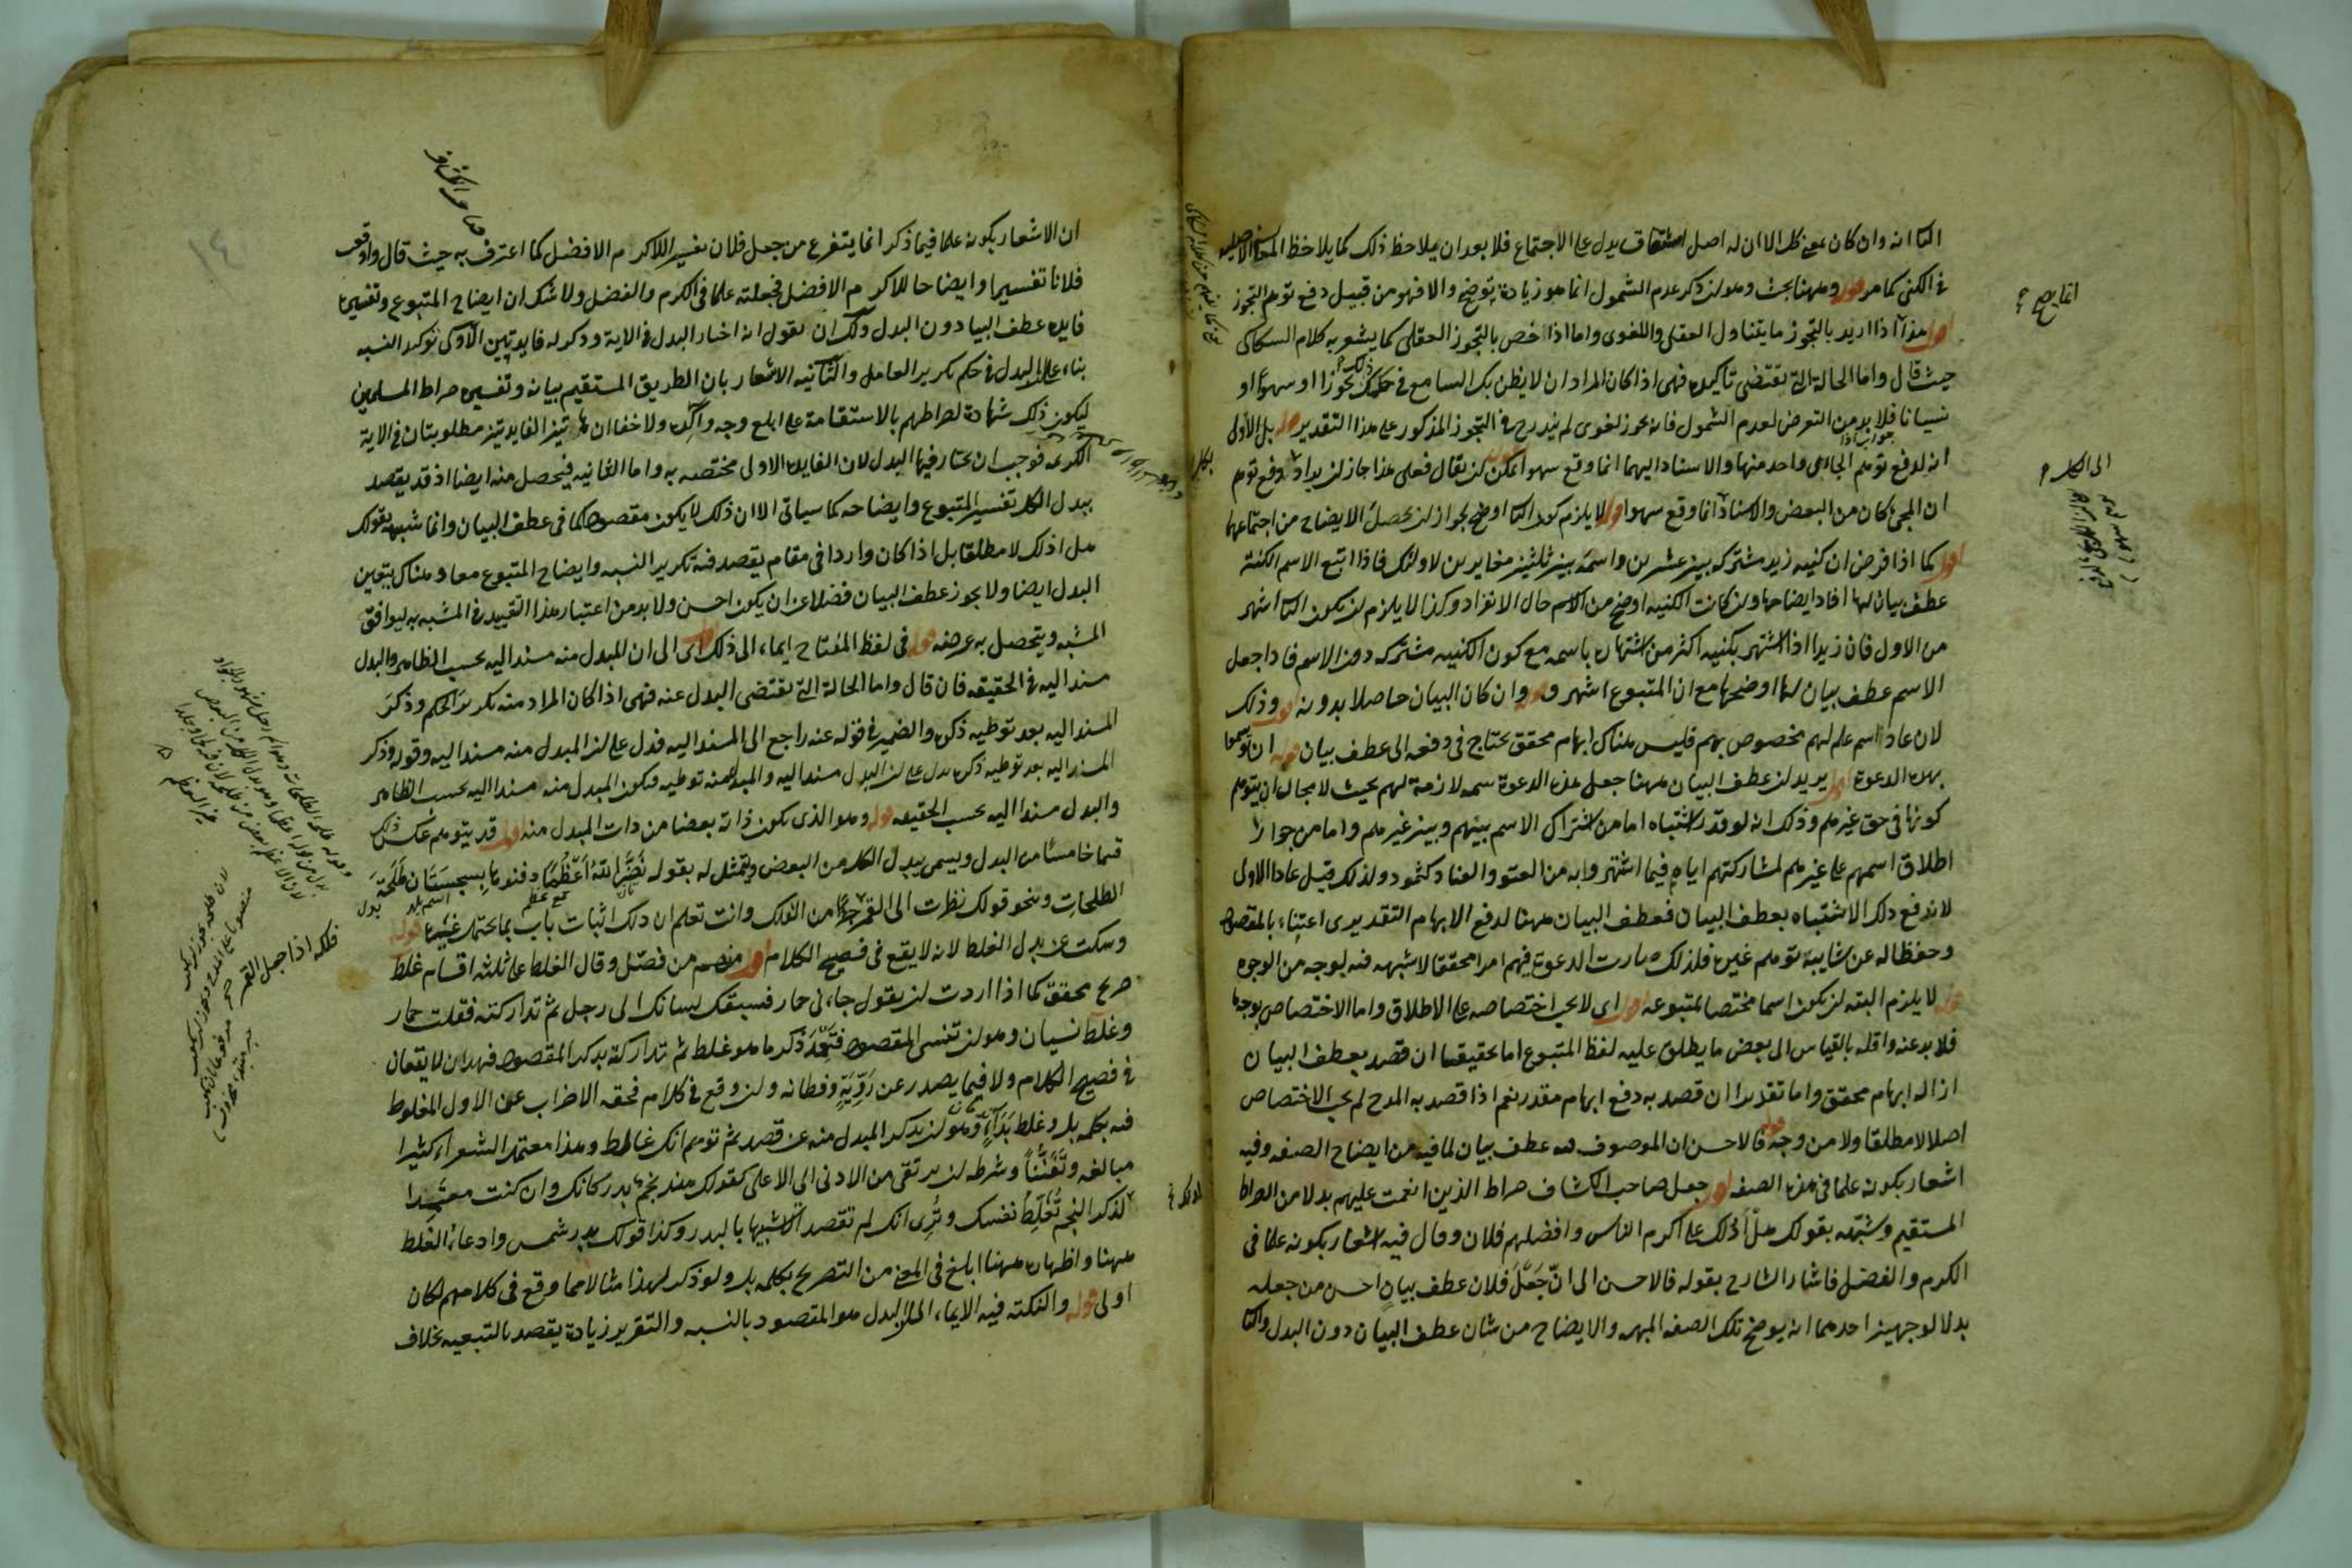 انه وان كان بمعنى كل الا ان له اصل اشتقاق يدل على الاجتماع فلا بعد ان يلاحظ ذلك كما يلاحظ المعانى الاصلية
فى الكنى كما مر قوله وههنا بحث وهو ان ذكر عدم الشمول انما هو زيادة توضيح والا فهو من قبيل دفع توهم التجوز
اقول هذا اذا اريد بالتجوز ما يتناول العقلى واللغوى واما اذا خص بالتجوز العقلى كما يشعر به كلام السكاكى
حيث قال واما الحالة التى تقتضى تاكيده فهى اذا كان المراد ان لا يظن بك السامع فى حكمك ذلك تجوزا او سهوا او
نسيانا فلا بد من التعرض لعدم الشمول فانه تجوز لغوى لم يندرج فى التجوز المذكور على هذا التقدير قوله بل الاولى
انه لدفع توهم ان الجائى واحد منهما والاسناد اليهما انما وقع سهوا يمكن ان يقال فعلى هذا جاز ان يراد دفع توهم
ان المجئ كان من البعض والاسناد انما وقع سهوا قوله لا يلزم كون الثانى اوضح لجواز ان يحصل الايضاح من اجتماعهما
اقول كما اذا فرض ان كنية زيد مشترك بين عشرين واسمه بين ثلثين مغايرين لاولئك فاذا اتبع الاسم الكنية
عطف بيان لها افاد ايضاحها وان كانت الكنية اوضح من الاسم حال الانفراد وكذا لا يلزم ان يكون الثانى اشهر
من الاول فان زيدا اذا اشتهر بكنيته اكثر من اشتهاره باسمه مع كون الكنية مشتركه دون الاسم فاذا جعل
الاسم عطف بيان لها اوضحها مع ان المتبوع اشهر قوله وان كان البيان حاصلا بدونه اقول وذلك
لان عادا اسم علم لهم مخصوص بهم فليس هناك ابهام محقق يحتاج فى دفعه الى عطف بيان قوله ان توسموا
بهذه الدعوة اقول يريد ان عطف البيان ههنا جعل هذه الدعوة سمة لازمة لهم بحيث لا مجال ان يتوهم
كونها فى حق غيرهم وذلك انه لو قدر اشتباه اما من اشتراك الاسم بينهم وبين غيرهم واما من جواز
اطلاق اسمهم على غيرهم لمشاركتهم اياهم فيما اشتهروا به من العتو والعناد كثمود ولذلك قيل عادا الاولى
لاندفع ذلك الاشتباه بعطف البيان فعطف البيان ههنا لدفع الابهام التقديرى اعتناء بالمقصود
وحفظا له عن شايبة توهم غيره فلذلك صارت الدعوة فيهم امرا محققا لا شبهه فيه بوجه من الوجوه
قوله لا يلزم البته ان يكون اسما مختصا بمتبوعه اقول اى لا يجب اختصاصه على الاطلاق واما الاختصاص بوجه ما
فلا بد عنه واقله بالقياس الى بعض ما يطلق عليه لفظ المتبوع اما تحقيقا ان قصد بعطف البيان
ازالة ابهام محقق واما تقديرا ان قصد به دفع ابهام مقدر نعم اذا قصد به المدح لم يجب الاختصاص
اصلا لا مطلقا ولا من وجه قوله فالاحسن ان الموصوف فيه عطف بيان لما فيه من ايضاح الصفه وفيه
اشعار بكونه علما فى هذه الصفه اقول جعل صاحب الكشاف صراط الذين انعمت عليهم بدلا من الصراط
المستقيم وشبهه بقولك هل ادلك على اكرم الناس وافضلهم فلان وقال فيه اشعار بكونه علما فى
الكرم والفضل فاشار الشارح بقوله فالاحسن الى ان جعل فلان عطف بيان احسن من جعله
بدلا لوجهين احدهما انه يوضح تلك الصفه المبهمه والايضاح من شان عطف البيان دون البدل والثانى
ان الاشعار بكونه علما فيما ذكر انما يتفرع من جعل فلان تفسيرا للاكرم الافضل كما اعترف به حيث قال واوقعت
فلانا تفسيرا وايضاحا للاكرم الافضل فجعلته علما فى الكرم والفضل ولا شك ان ايضاح المتبوع وتفسيره
فايدة عطف البيان دون البدل ولك ان تقول انه اختار البدل فى الاية وذكر له فايدتين الاولى توكيد النسبه
بناء على ان البدل فى حكم تكرير العامل والثانيه الاشعار بان الطريق المستقيم بيانه وتفسيره صراط المسلمين
ليكون ذلك شهادة لصراطهم بالاستقامة على ابلغ وجه واكده ولا خفا ان هاتين الفايدتين مطلوبتان فى الاية
الكريمه فوجب ان يختار فيها البدل لان الفايدة الاولى مختصه به واما الثانيه فيحصل منه ايضا اذ قد يقصد
ببدل الكل تفسير المتبوع وايضاحه كما سياتى الا ان ذلك لا يكون مقصودا كما فى عطف البيان وانما شبهه بقولك
هل ادلك لا مطلقا بل اذا كان واردا فى مقام يقصد فيه تكرير النسبه وايضاح المتبوع معا وهناك يتعين
البدل ايضا ولا يجوز عطف البيان فضلا عن ان يكون احسن ولا بد من اعتبار هذا التقييد فى المشبه به ليوافق
المشبه ويتحصل به غرضه قوله فى لفظ المفتاح ايماء الى ذلك اقول اى الى ان المبدل منه مسند اليه بحسب الظاهر والبدل
مسند اليه فى الحقيقه فان قال واما الحالة التى تقتضى البدل عنه فهى اذا كان المراد منه تكرير الحكم وذكر
المسند اليه بعد توطيه ذكره والضمير فى قوله عنه راجع الى المسند اليه فدل على ان المبدل منه مسند اليه وقوله وذكر
المسند اليه بعد توطيه ذكره يدل على ان البدل مسند اليه والمبدل منه توطيه فيكون المبدل منه مسندا اليه بحسب الظاهر
والبدل مسندا اليه بحسب الحقيقه قوله وهو الذى يكون ذاته بعضا من ذات المبدل منه اقول قد يتوهم عكس ذلك
قسما خامسا من البدل ويسمى بدل الكل من البعض ويتمثل له بقوله نضر الله اعظما دفنوها بسجستان طلحة
الطلحات ونحو قولك نظرت الى القمر فلكه من الفلك وانت تعلم ان ذلك اثبات باب بما يحتمل غيره قوله
وسكت عن بدل الغلط لانه لا يقع فى فصيح الكلام اقول منهم من فصل وقال الغلط على ثلثه اقسام غلط
صريح محقق كما اذا اردت ان يقول جاءنى حمار فسبقك لسانك الى رجل ثم تداركته فقلت حمار
وغلط نسيان وهو ان تنسى المقصود فتعمد ذكر ما هو غلط ثم تداركه بذكر المقصود فهذان لا يقعان
فى فصيح الكلام ولا فيما يصدر عن روية وفطانه وان وقع فى كلام فحقه الاضراب عن الاول المغلوط
فيه بكلمه بل وغلط بداء وهو ان يذكر المبدل منه عن قصد ثم توهم انك غالط وهذا معتمد الشعراء كثيرا
مبالغه وتفننا وشرطه ان يرتقى من الادنى الى الاعلى كقولك هند نجم بدر كانك وان كنت معتمدا
لذكر النجم تغلط نفسك وترى انك لم تقصد الا تشبيها بالبدر وكذا قولك بدر شمس وادعاء الغلط
ههنا واظهاره ههنا ابلغ فى المعنى من التصريح بكلمه بل ولو ذكر لهذا مثالا مما وقع فى كلامهم لكان
اولى قوله والنكته فيه الايماء الى ان البدل هو المقصود بالنسبه والتقرير زيادة يقصد بالتبعيه بخلاف